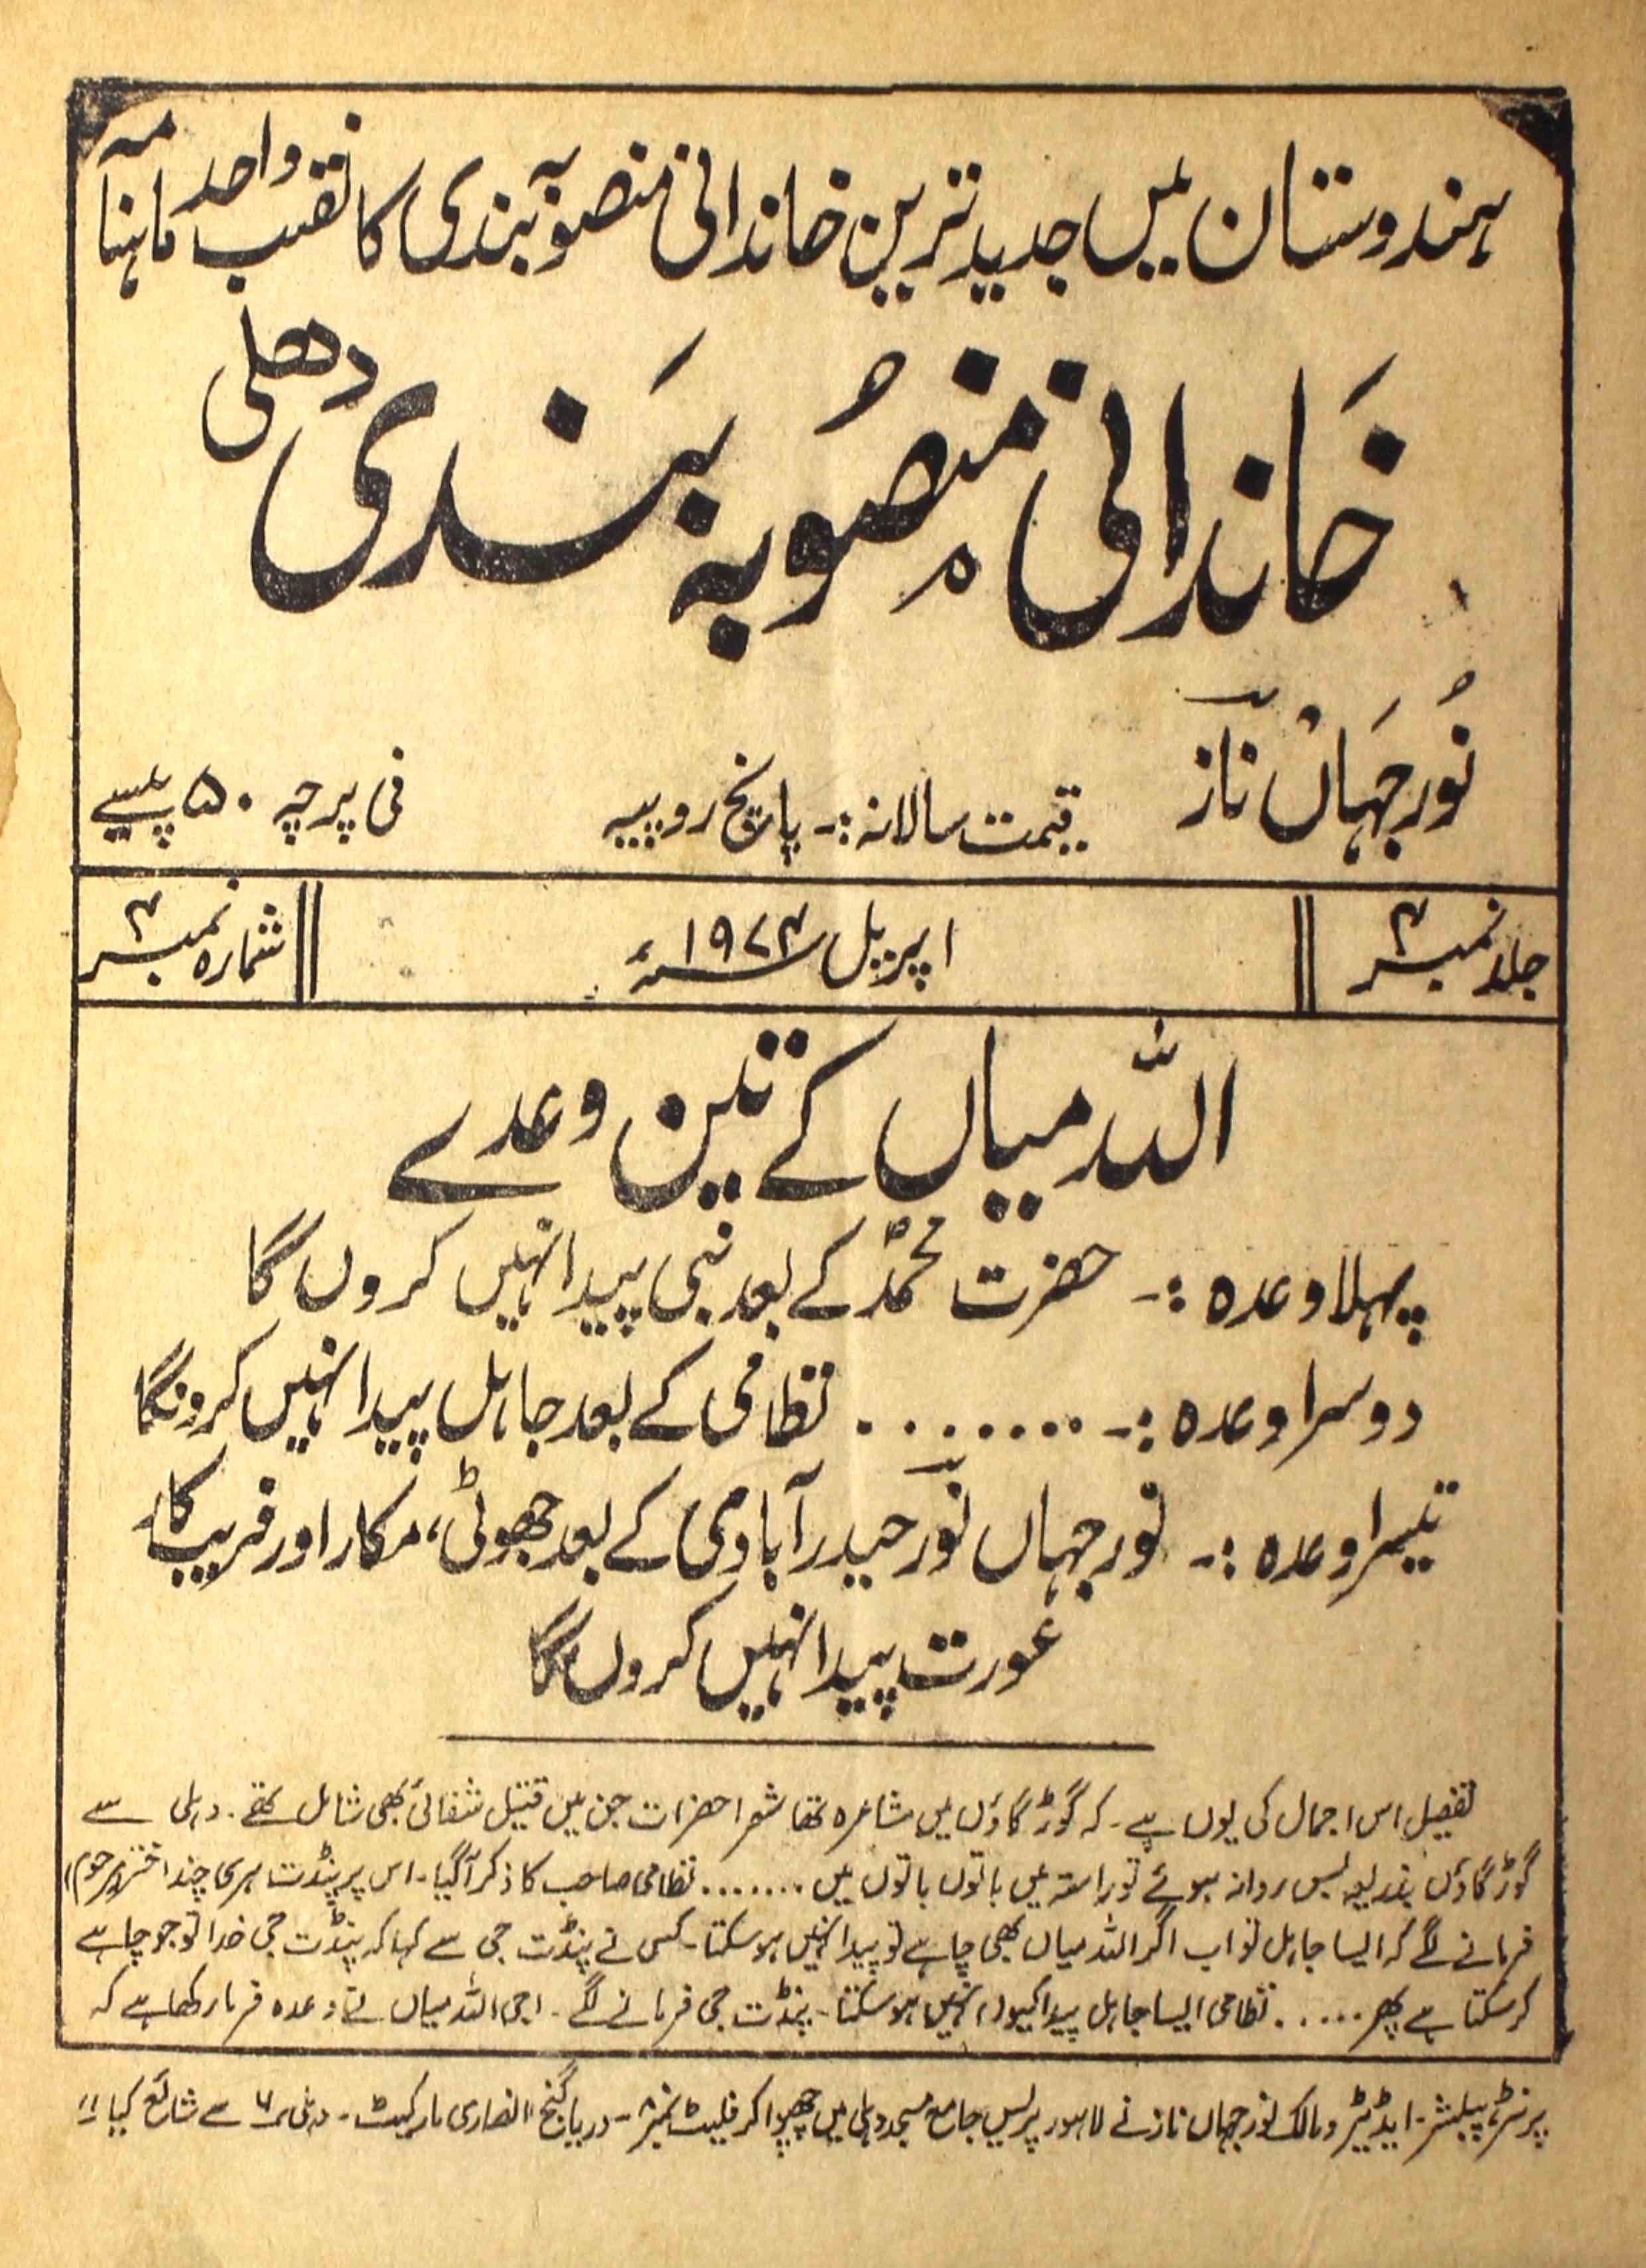 ہندوستان میں جدید ترین خاندانی منصوبہ بندی کا نقیب واحد ماہنامہ
خاندانی منصوبہ بندی دھلی
نور جہاں ناز
قیمت سالانہ:۔ پانچ روپیہ
فی پرچہ ۵۰ پیسے
جلد نمبر ۴
اپریل ۱۹۷۴ء
شمارہ نمبر ۴
اللہ میاں کے تین وعدے
پہلا وعدہ :۔ حضرت محمدؐ کے بعد نبی پیدا نہیں کروں گا
دوسرا وعدہ :۔ ........ نظامی کے بعد جاہل پیدا نہیں کرونگا
تیسرا وعدہ :۔ نور جہاں نور حیدر آبادی کے بعد جھوٹی، مکار اور فریب کار
عورت پیدا نہیں کروں گا
تفصیل اس اجمال کی یوں ہے۔ کہ گوڑ گاؤں میں مشاعرہ تھا شعرا حضرات جن میں قتیل شفائی بھی شامل تھے۔ دہلی سے
گوڑ گاؤں بذریعہ بس روانہ ہوئے تو راستہ میں باتوں باتوں میں ....... نظامی صاحب کا ذکر آگیا۔ اس پر پنڈت ہری چند اختر (مرحوم)
فرمانے لگے کہ ایسا جاہل تو اب اگر اللہ میاں بھی چاہے تو پیدا نہیں ہو سکتا۔ کسی نے پنڈت جی سے کہا کہ پنڈت جی خدا تو جو چاہے
کر سکتا ہے پھر ..... نظامی ایسا جاہل پیدا کیوں نہیں ہو سکتا۔ پنڈت جی فرمانے لگے۔ اجی اللہ میاں نے وعدہ فرما رکھا ہے کہ
پرنٹر، پبلشر۔ ایڈیٹر و مالک نور جہاں ناز نے لاہور پریس جامع مسجد دہلی میں چھپوا کر فلیٹ نمبر ۸۔ دریا گنج انصاری مارکیٹ۔ دہلی ۶ سے شائع کیا!!